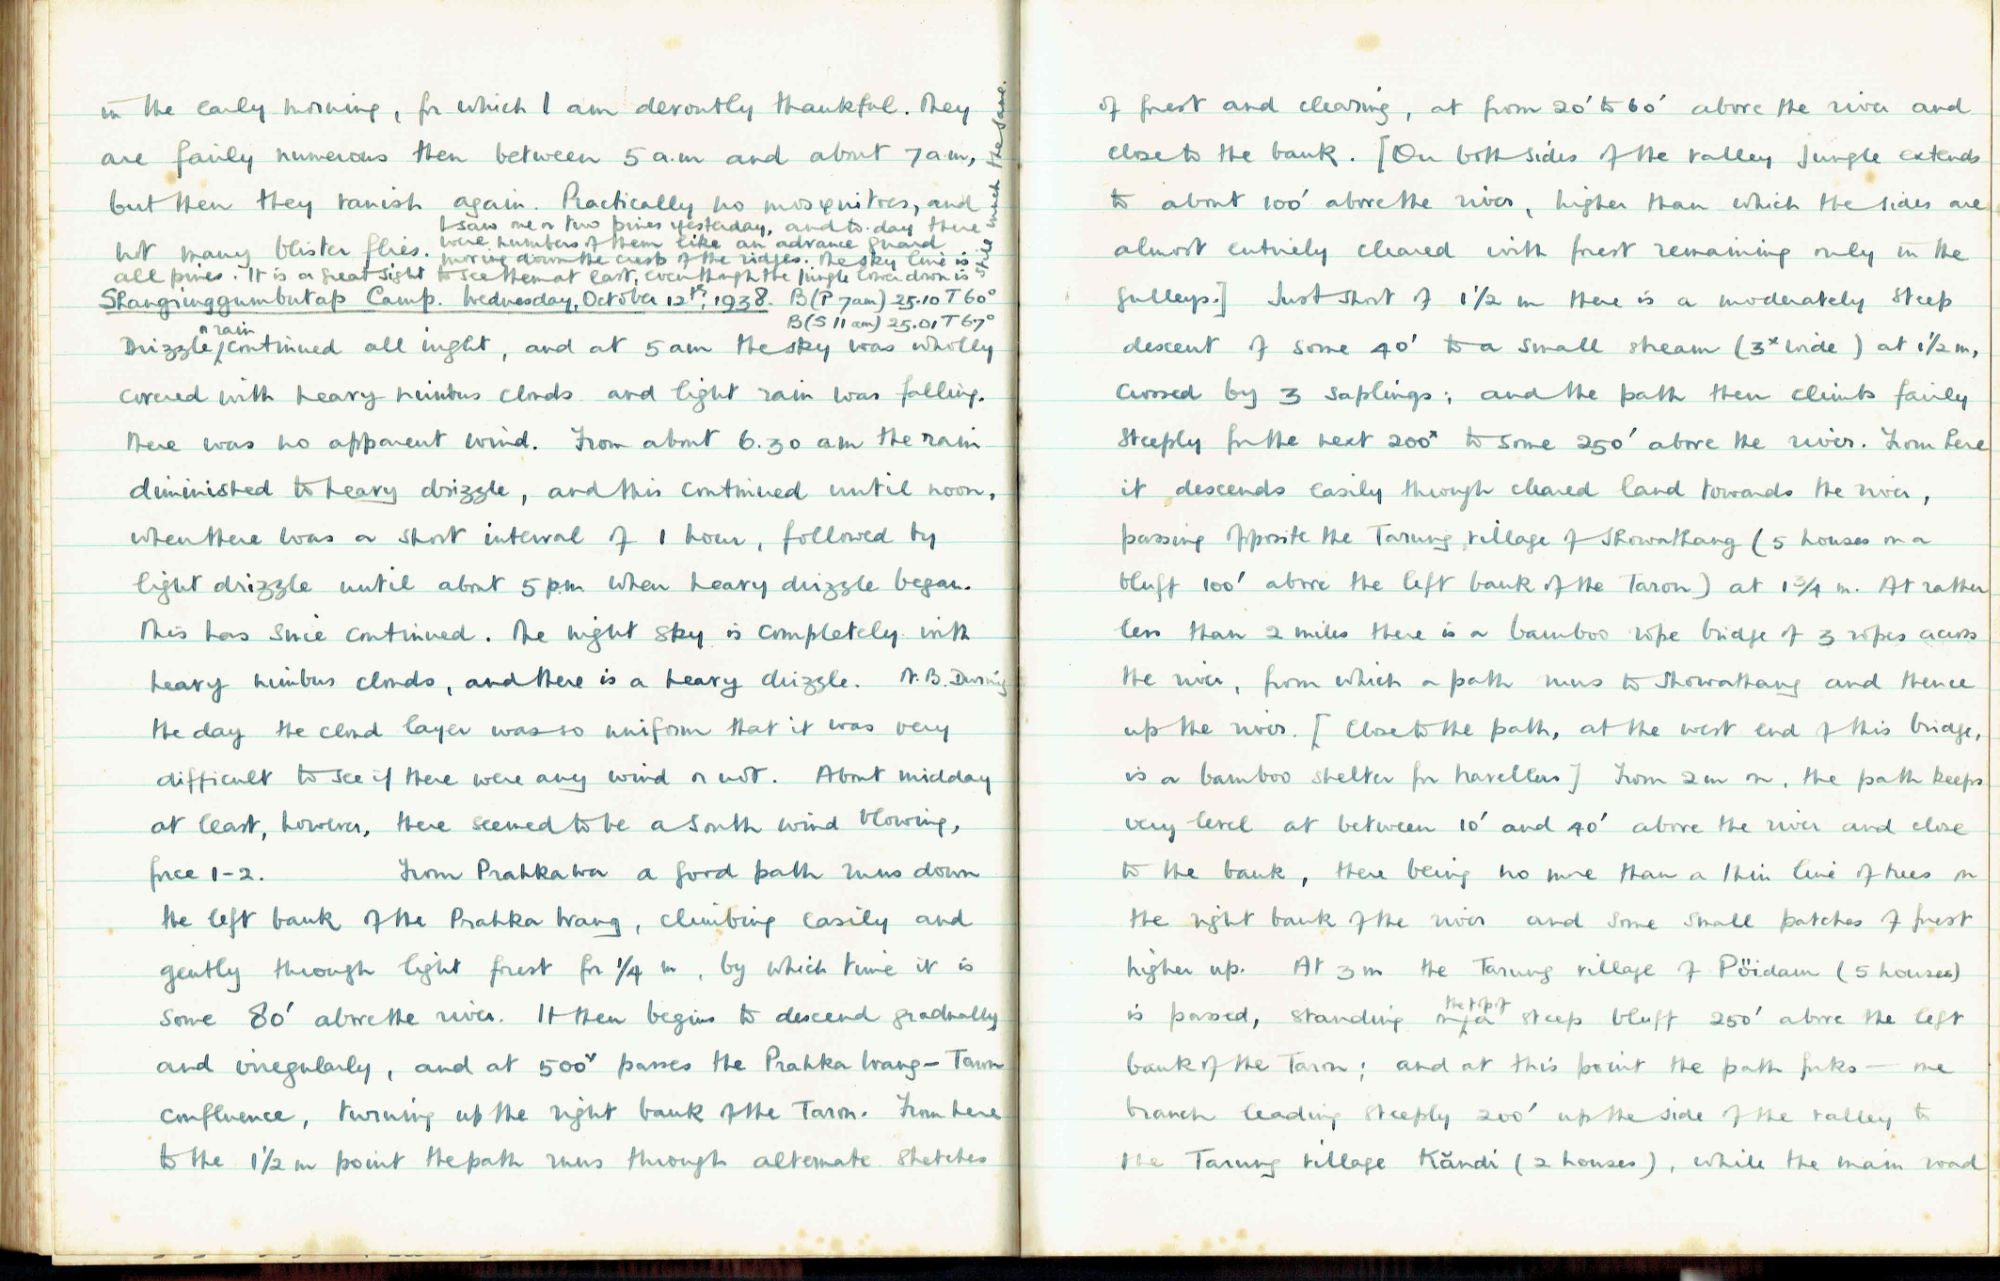 in the early morning, for which I am devoutly thankful. They
are fairly numerous then between 5 a.m and about 7 a.m,
but then they vanish again. Practically no mosquitoes, and
not many blister flies. I saw one or two pines yesterday, and to-day there
were numbers of them like an advance guard
moving down the crests of the ridges. The sky line is
all pines. It is a great sight to see them at last, even though the jungle lower down is
still much the same.
Shangringgumbutap Camp. Wednesday, October 12th, 1938. B(P 7am) 25.10 T 60°
B(S 11 am) 25.01 T 67°
Drizzle, rain continued all night, and at 5 am the sky was wholly
covered with heavy nimbus clouds and light rain was falling.
There was no apparent wind. From about 6.30 am the rain
diminished to heavy drizzle, and this continued until noon,
when there was a short interval of 1 hour, followed by
light drizzle until about 5 p.m when heavy drizzle began.
This has since continued. The night sky is completely with
heavy nimbus clouds, and there is a heavy drizzle. N.B. During
the day the cloud layer was so uniform that it was very
difficult to see if there were any wind or not. About midday
at least, however, there seemed to be a South wind blowing,
force 1-2. From Prahkawa a good path runs down
the left bank of the Prahka Wang, climbing easily and
gently through light forest for 1/4 m, by which time it is
some 80' above the river. It then begins to descend gradually
and irregularly, and at 500ˣ passes the Prahka Wang - Taron
confluence, turning up the right bank of the Taron. From here
to the 1½ m point the path runs through alternate stretches
of forest and clearing, at from 20' to 60' above the river and
close to the bank. [On both sides of the valley jungle extends
to about 100' above the river, higher than which the sides are
almost entirely cleared with forest remaining only in the
gulleys.] Just short of 1½ m there is a moderately steep
descent of some 40' to a small stream (3ˣ wide) at 1½ m,
crossed by 3 saplings; and the path then climbs fairly
steeply for the next 200ˣ to some 250' above the river. From here
it descends easily through cleared land towards the river,
passing opposite the Tarung village of Showathang (5 houses on a
bluff 100' above the left bank of the Taron) at 1¾ m. At rather
less than 2 miles there is a bamboo rope bridge of 3 ropes across
the river, from which a path runs to Showathang and thence
up the river. [Close to the path, at the west end of this bridge,
is a bamboo shelter for travellers] From 2 m on, the path keeps
very level at between 10' and 40' above the river and close
to the bank, there being no more than a thin line of trees on
the right bank of the river and some small patches of forest
higher up. At 3 m the Tarung village of Pöidam (5 houses)
is passed, standing on the top of a steep bluff 250' above the left
bank of the Taron; and at this point the path forks — one
branch leading steeply 200' up the side of the valley to
the Tarung village Kãndi (2 houses), while the main road